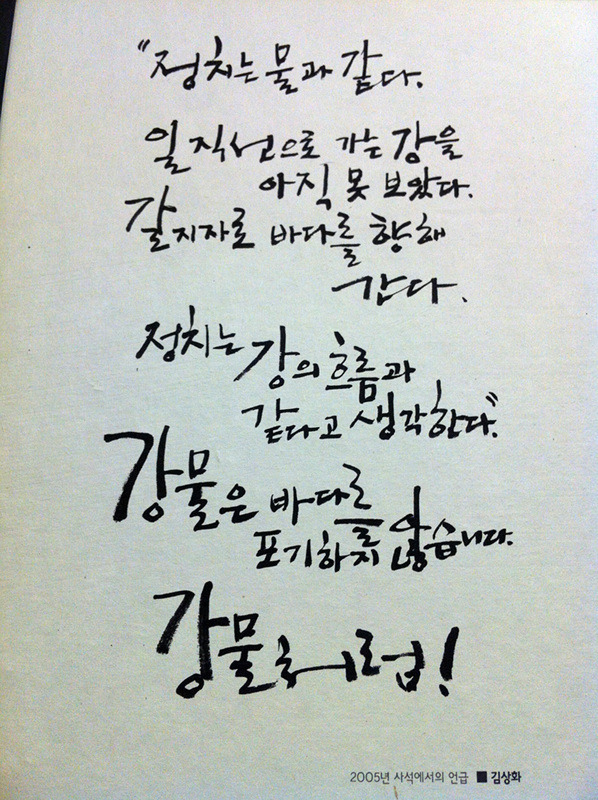 "정치는 물과 같다.
일직선으로 가는 강을
아직 못 보았다.
갈지자로 바다를 향해
간다.
정치는 강의 흐름과
같다고 생각한다"
강물은 바다를
포기하지 않습니다.
강물처럼!
2005년 사석에서의 언급 ■ 김상화